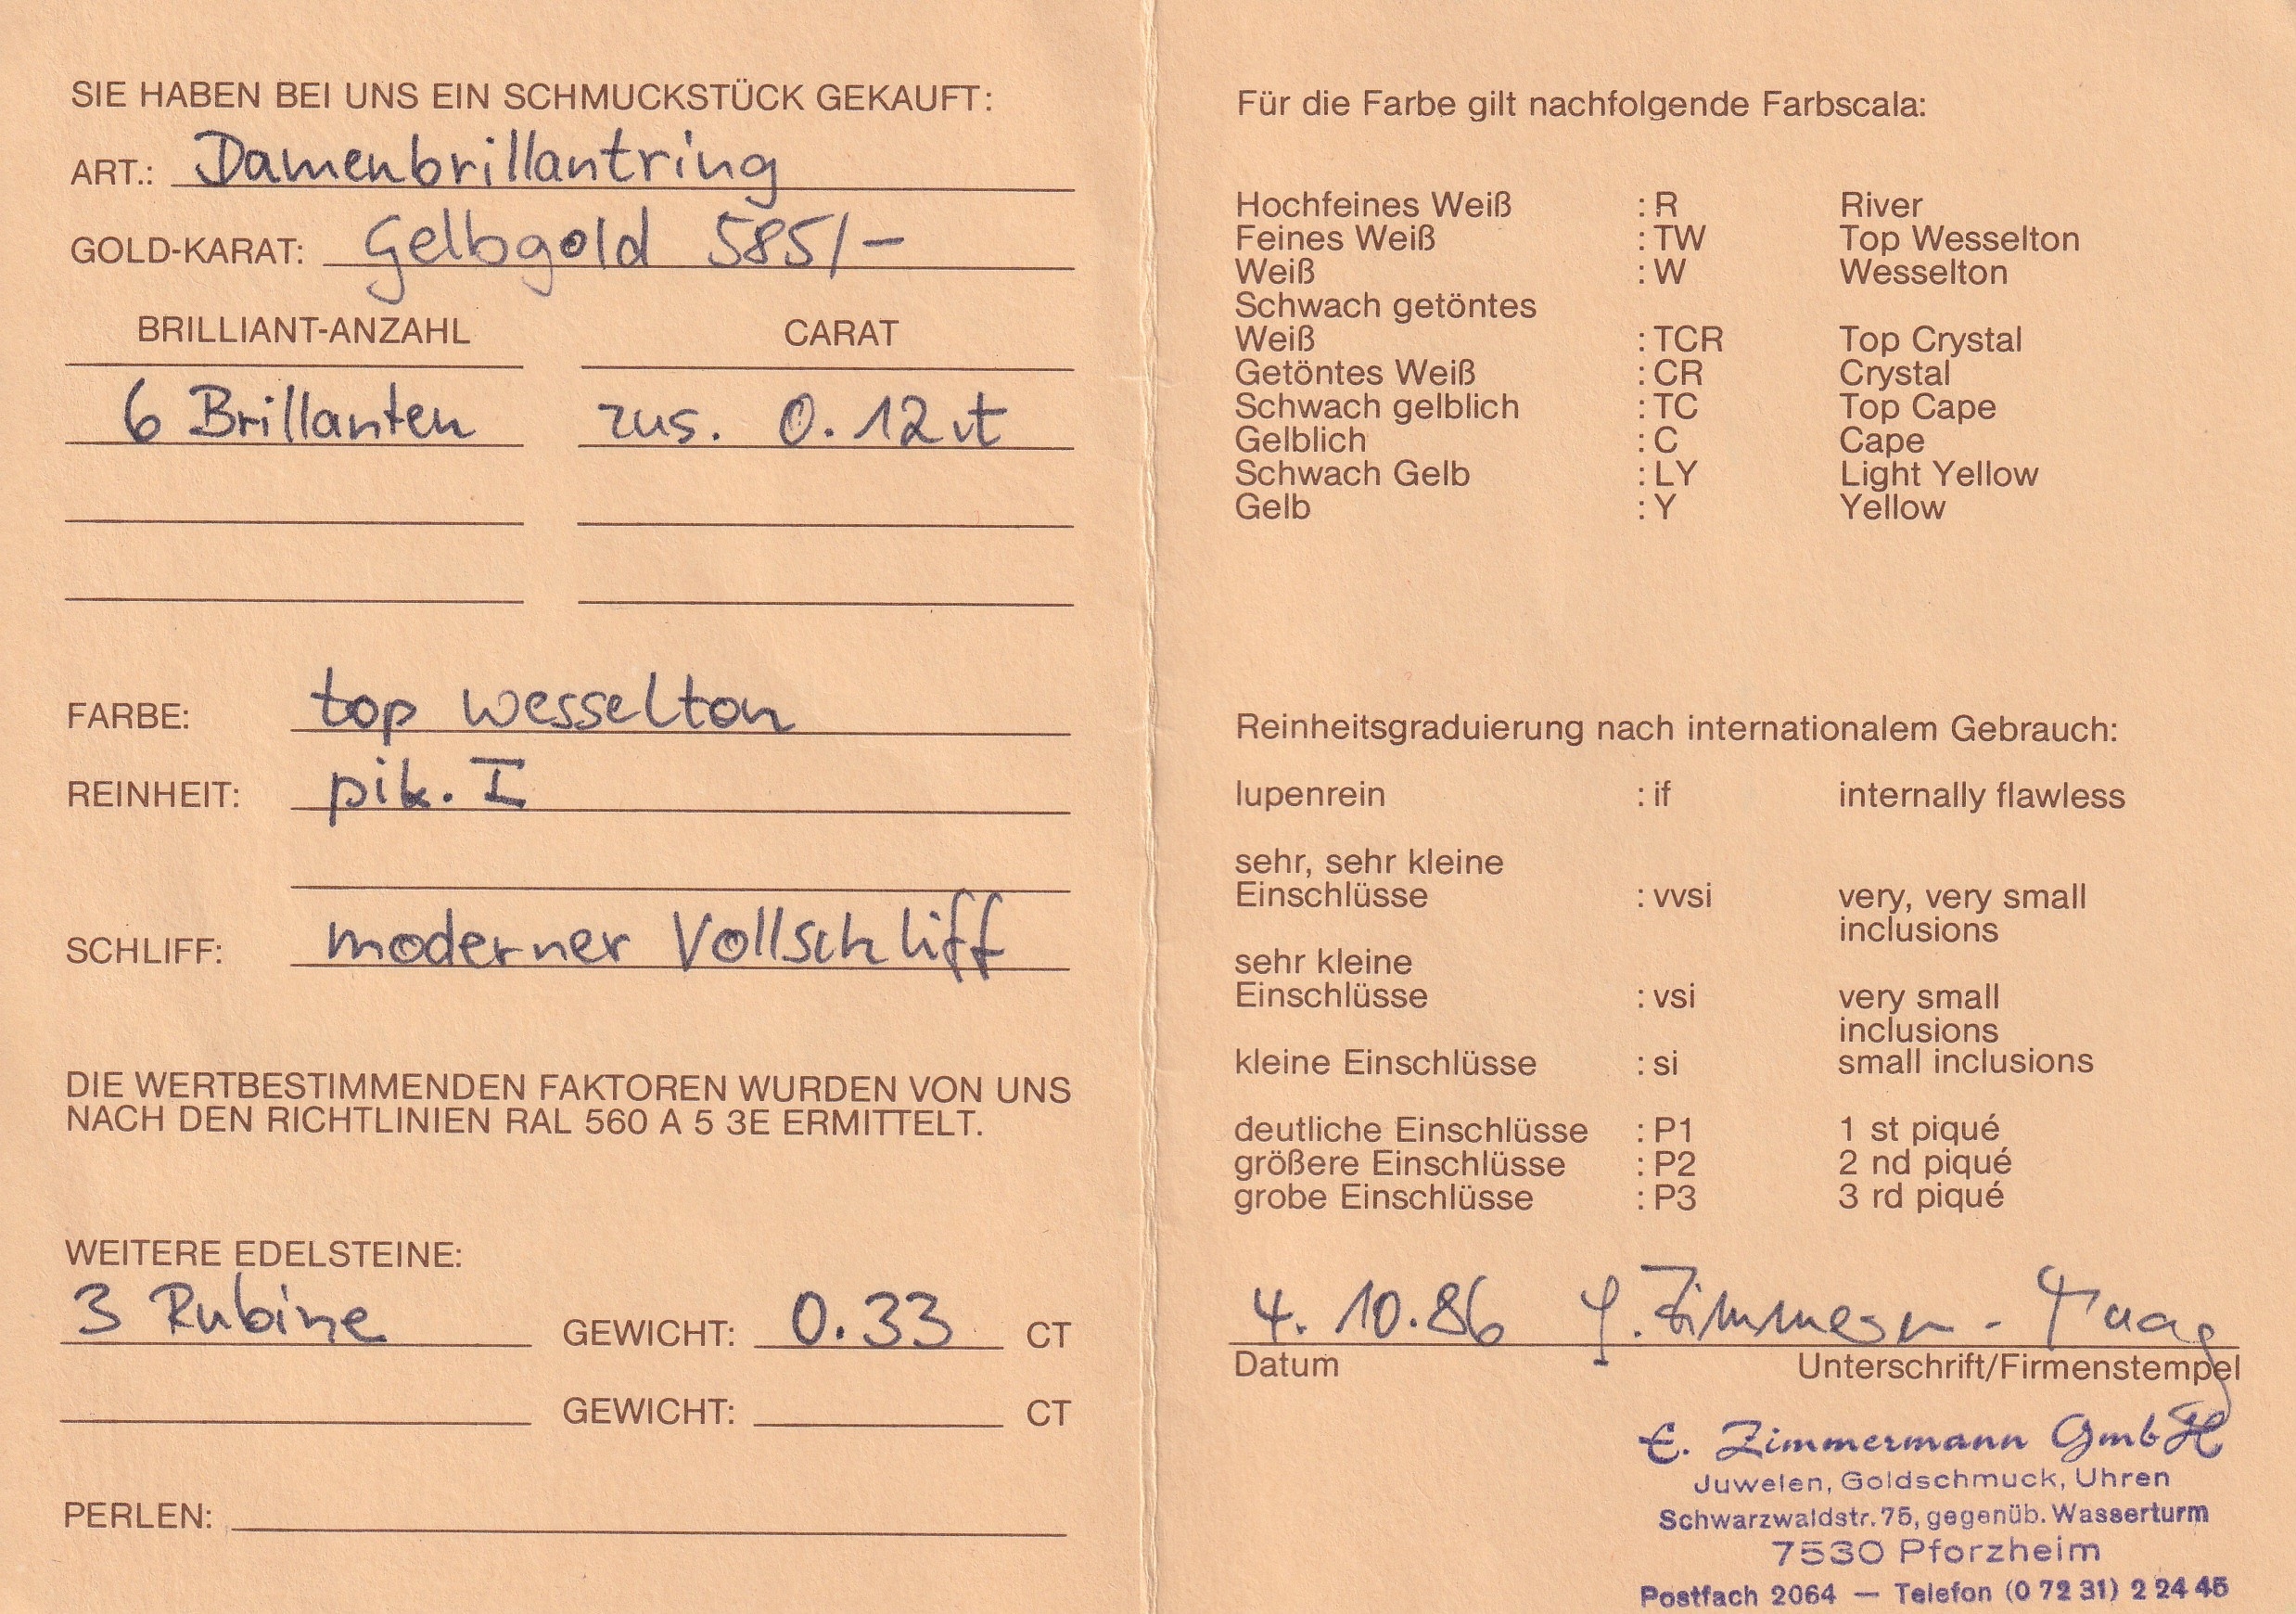 SIE HABEN BEI UNS EIN SCHMUCKSTÜCK GEKAUFT:
ART.: Damenbrillantring
GOLD-KARAT: Gelbgold 585/–
BRILLIANT-ANZAHL CARAT
6 Brillanten zus. 0.12 ct
FARBE: top wesselton
REINHEIT: pik. I
SCHLIFF: moderner Vollschliff
DIE WERTBESTIMMENDEN FAKTOREN WURDEN VON UNS
NACH DEN RICHTLINIEN RAL 560 A 5 3E ERMITTELT.
WEITERE EDELSTEINE:
3 Rubine GEWICHT: 0.33 CT
GEWICHT: CT
PERLEN:
Für die Farbe gilt nachfolgende Farbscala:
Hochfeines Weiß : R River
Feines Weiß : TW Top Wesselton
Weiß : W Wesselton
Schwach getöntes
Weiß : TCR Top Crystal
Getöntes Weiß : CR Crystal
Schwach gelblich : TC Top Cape
Gelblich : C Cape
Schwach Gelb : LY Light Yellow
Gelb : Y Yellow
Reinheitsgraduierung nach internationalem Gebrauch:
lupenrein : if internally flawless
sehr, sehr kleine
Einschlüsse : vvsi very, very small
inclusions
sehr kleine
Einschlüsse : vsi very small
inclusions
kleine Einschlüsse : si small inclusions
deutliche Einschlüsse : P1 1 st piqué
größere Einschlüsse : P2 2 nd piqué
grobe Einschlüsse : P3 3 rd piqué
4. 10. 86
Datum Unterschrift/Firmenstempel
E. Zimmermann GmbH
Juwelen, Goldschmuck, Uhren
Schwarzwaldstr. 75, gegenüb. Wasserturm
7530 Pforzheim
Postfach 2064 — Telefon (0 72 31) 2 24 45